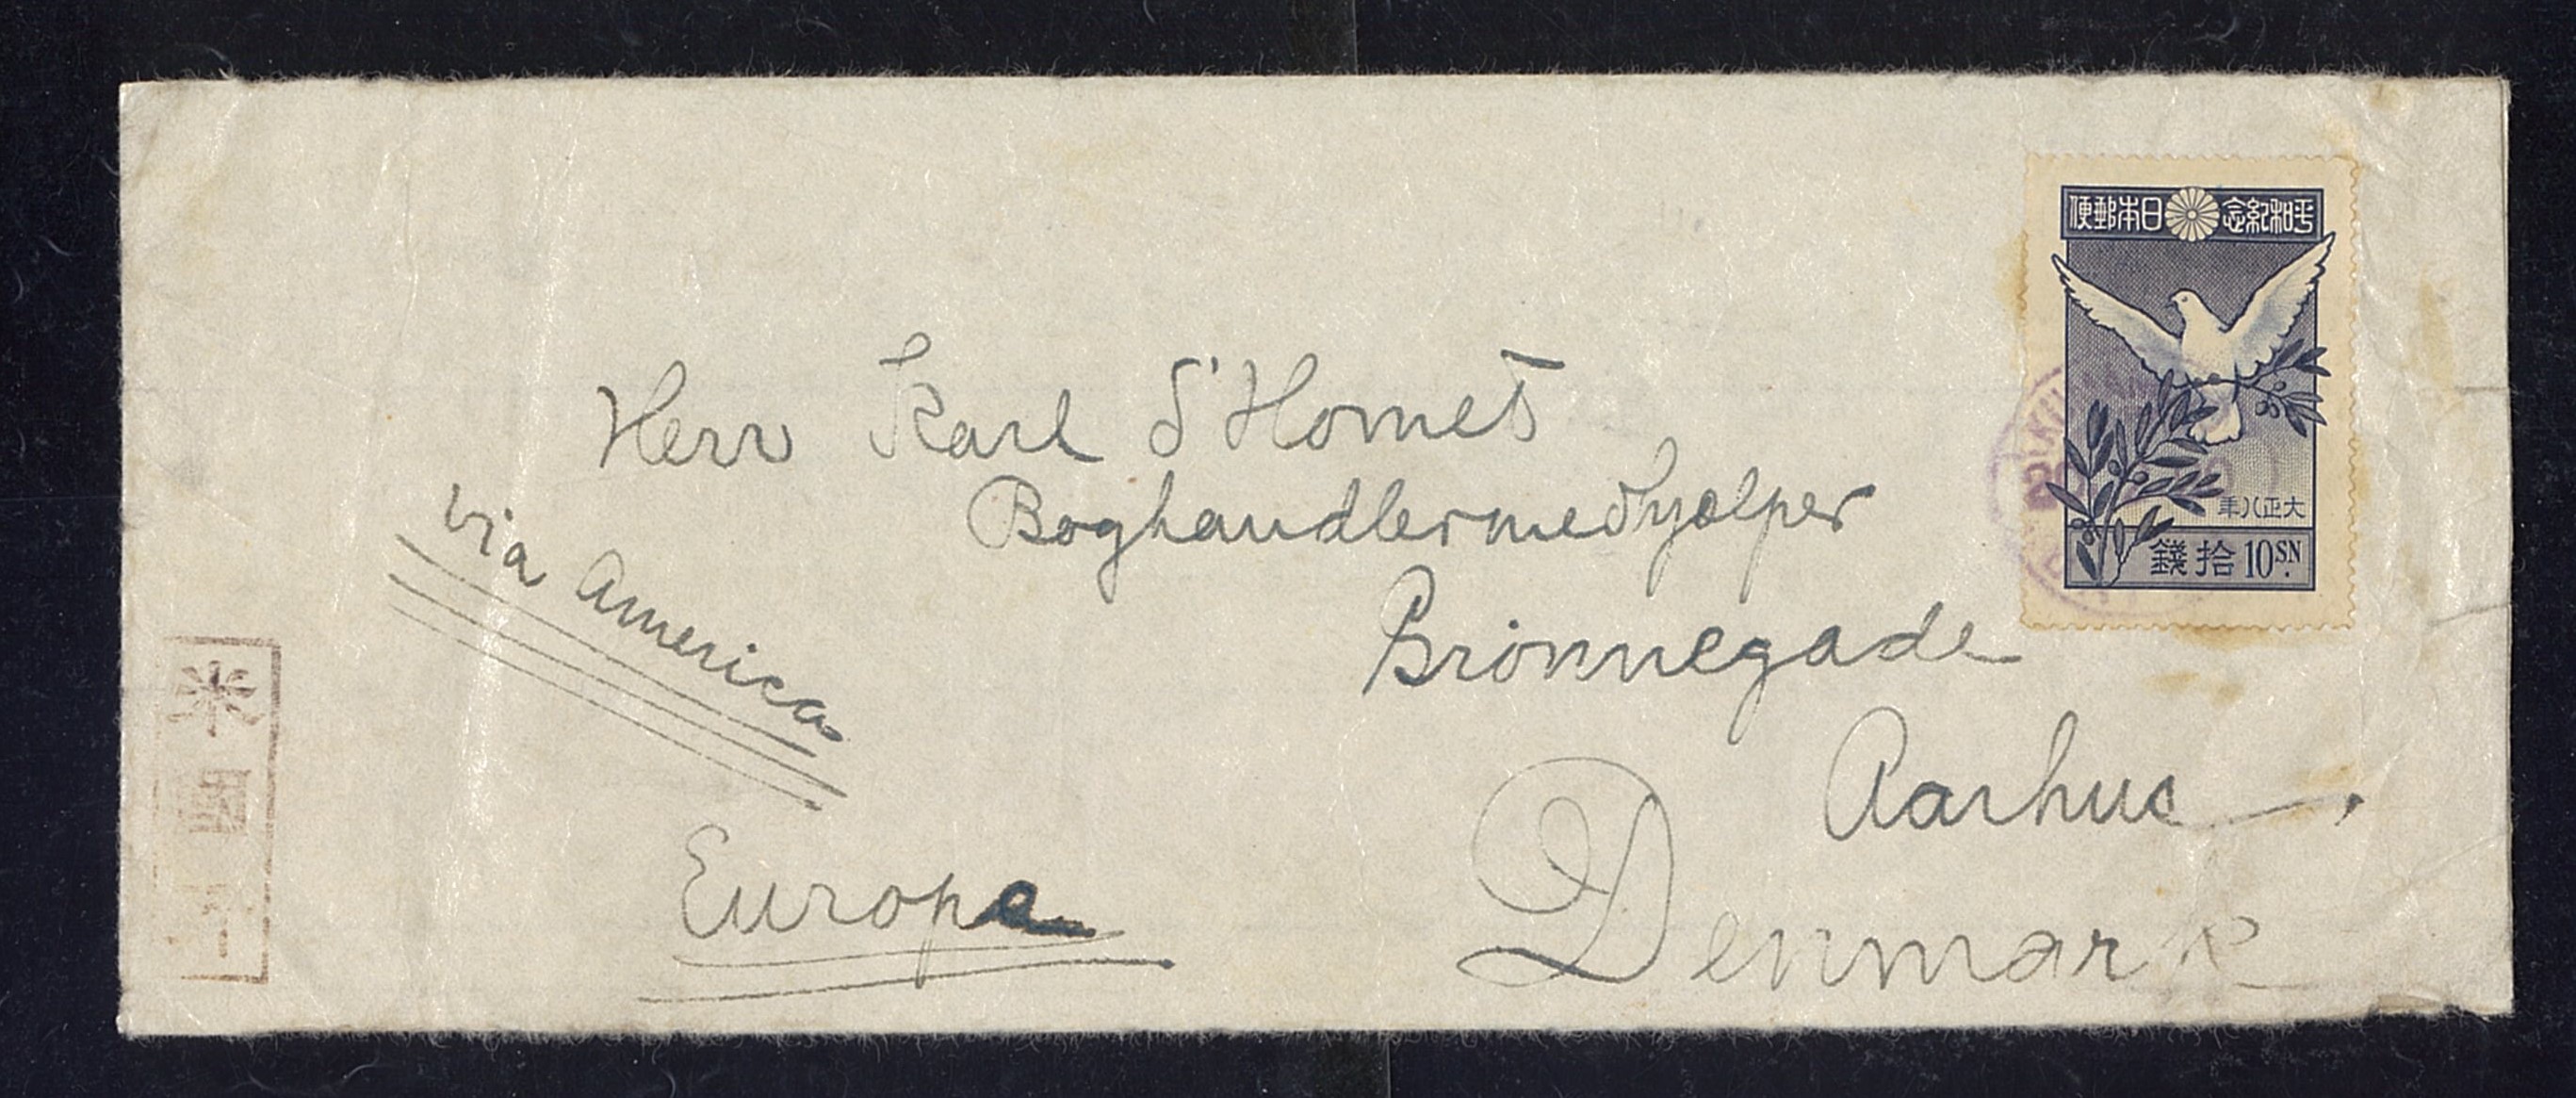 日本郵便 平和紀念
大正八年
拾錢 10 SN.
Herr Karl d'Homet
Boghandlermedhjælper
via America
Brönnegade
Aarhus
Europa
Denmark
米國